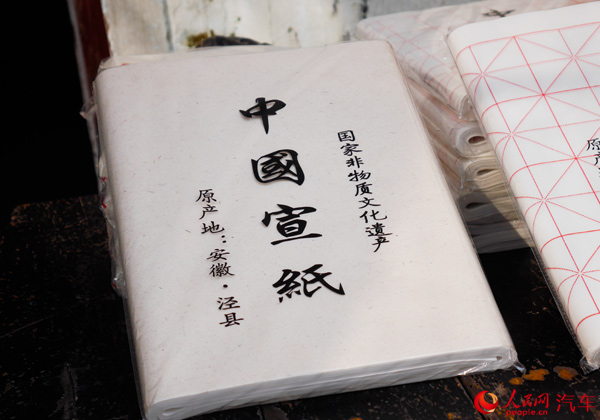 国家非物质文化遗产
中國宣紙
原产地：安徽·泾县
原产
人民网 汽车
people.cn